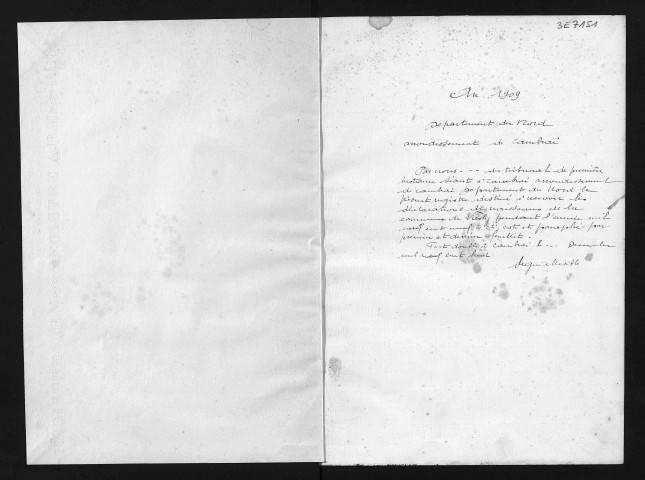 3E7151
An 1909
Département du Nord
arrondissement de Cambrai
Par nous - - - du tribunal de première
instance séant à Cambrai arrondissement
de Cambrai Département du Nord le
présent registre destiné à recevoir les
déclarations de naissances de la
commune de pendant l'année mil
neuf cent neuf a été coté et paraphé par
premier et dernier feuillet.
Fait double à Cambrai le - - - Décembre
mil neuf cent huit